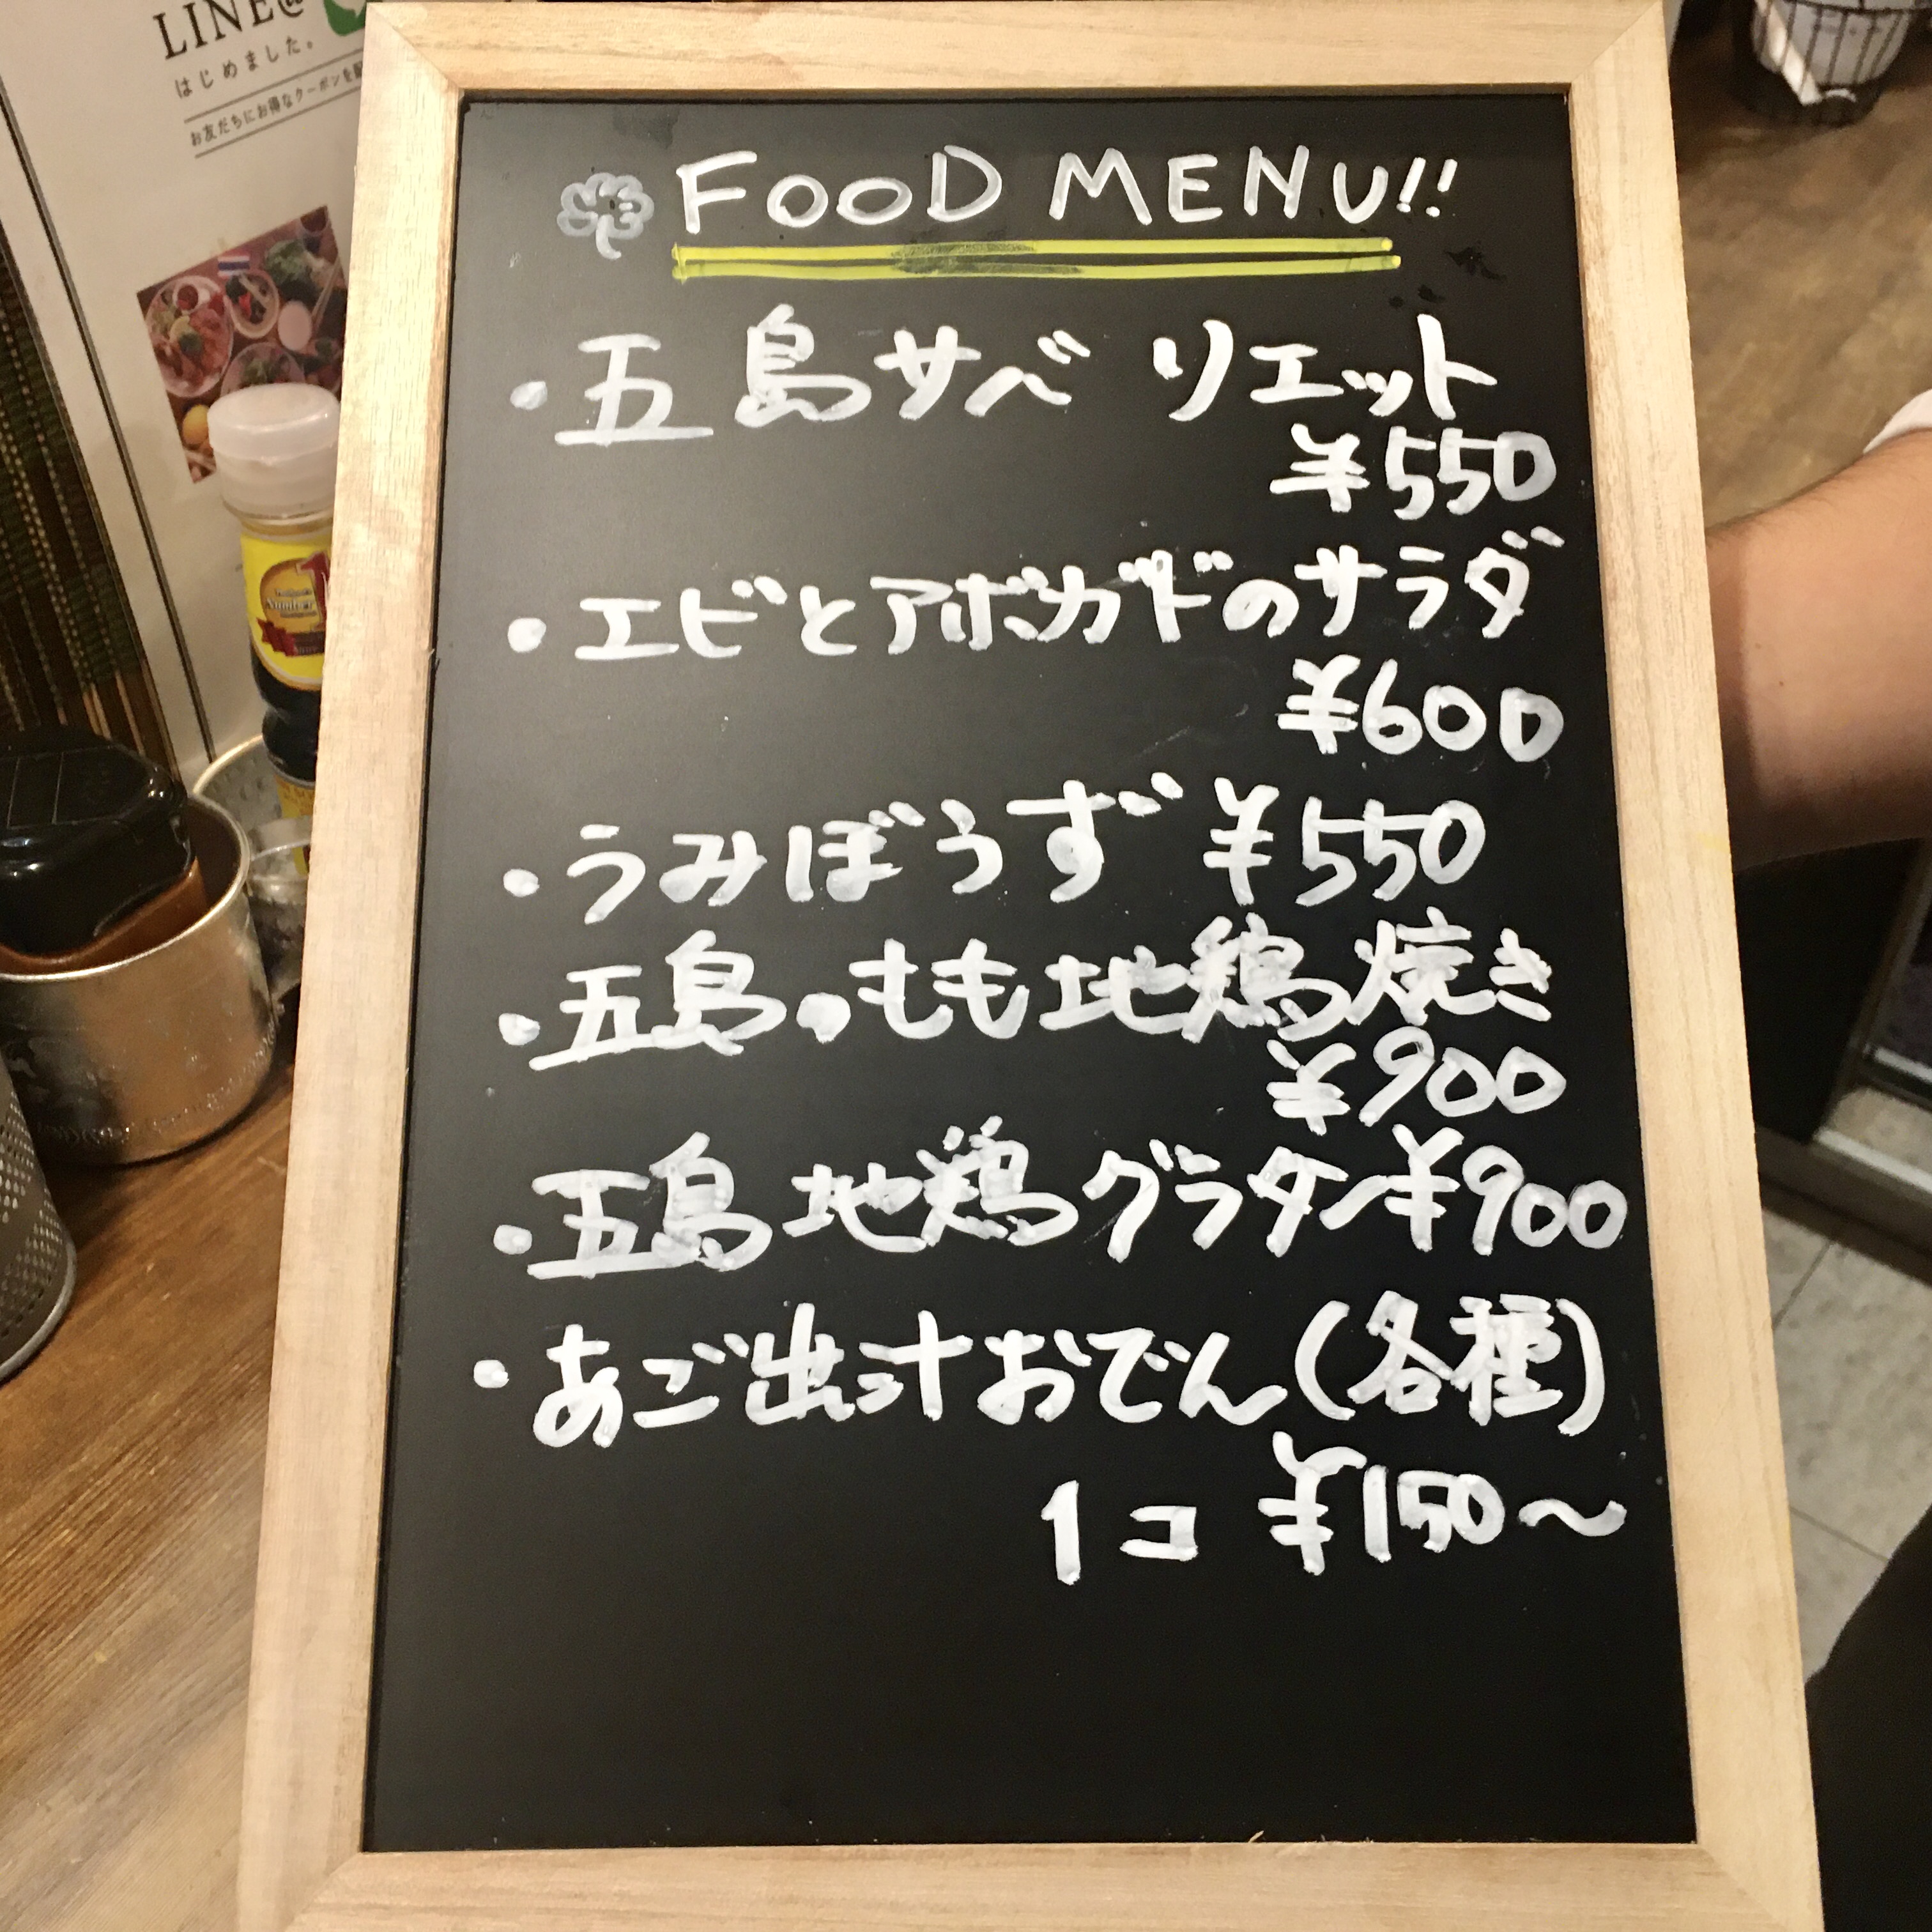 LINE@
はじめました。
お友だちにお得なクーポンを配
FOOD MENU!!
・五島サバ リエット
¥550
・エビとアボカドのサラダ
¥600
・うみぼうず ¥550
・五島のもも地鶏焼き
¥900
・五島地鶏グラタン¥900
・あご出汁おでん(各種)
1コ ¥150〜
Number